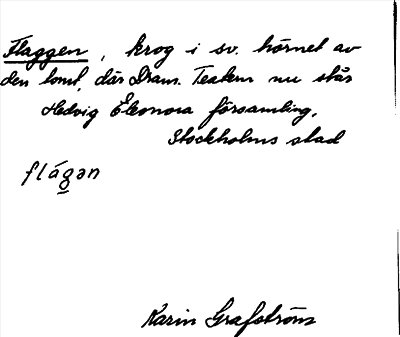 Flaggen, krog i sv. hörnet av
den tomt, där Dram. Teatern nu står
Hedvig Eleonora församling,
Stockholms stad
flágən
Karin Grafström